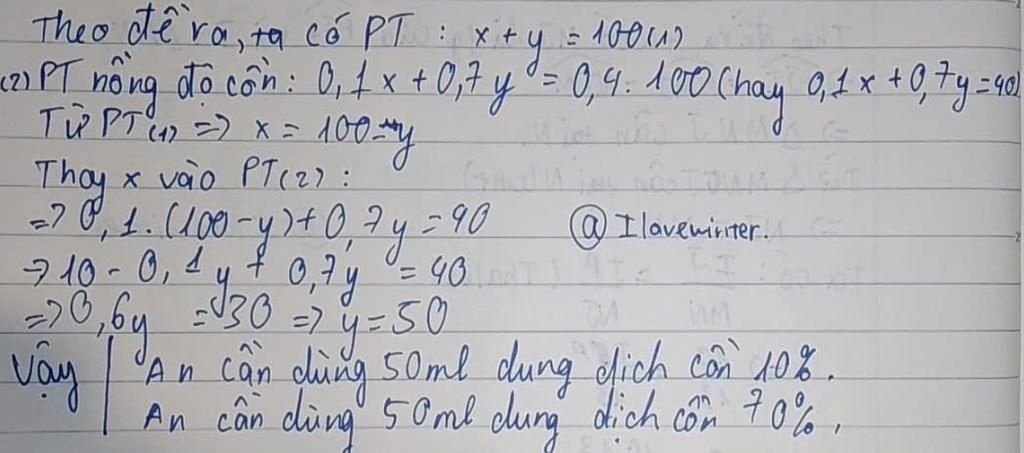 Theo đề ra, ta có PT : x + y = 100 (1)
(2) PT nồng độ cồn : 0,1x + 0,7y = 0,4 . 100 (hay 0,1x + 0,7y = 40)
Từ PT (1) => x = 100 - y
Thay x vào PT (2) :
=> 0,1 . (100 - y) + 0,7y = 40 @Ilovewinter.
=> 10 - 0,1y + 0,7y = 40
=> 0,6y = 30 => y = 50
Vậy | An cần dùng 50ml dung dịch cồn 10%.
An cần dùng 50ml dung dịch cồn 70%.